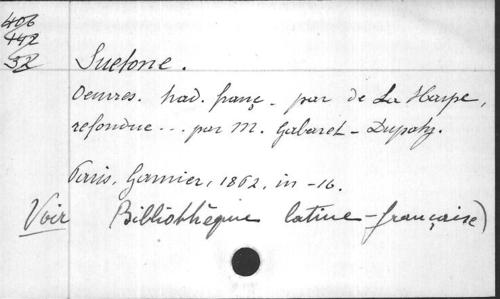 406
442
52
Suetone.
Oeuvres. trad. franç. par de La Harpe,
refondue... par M. Gabaret-Dupaty.
Paris, Garnier, 1862, in-16.
Voir Bibliothèque latine-française)